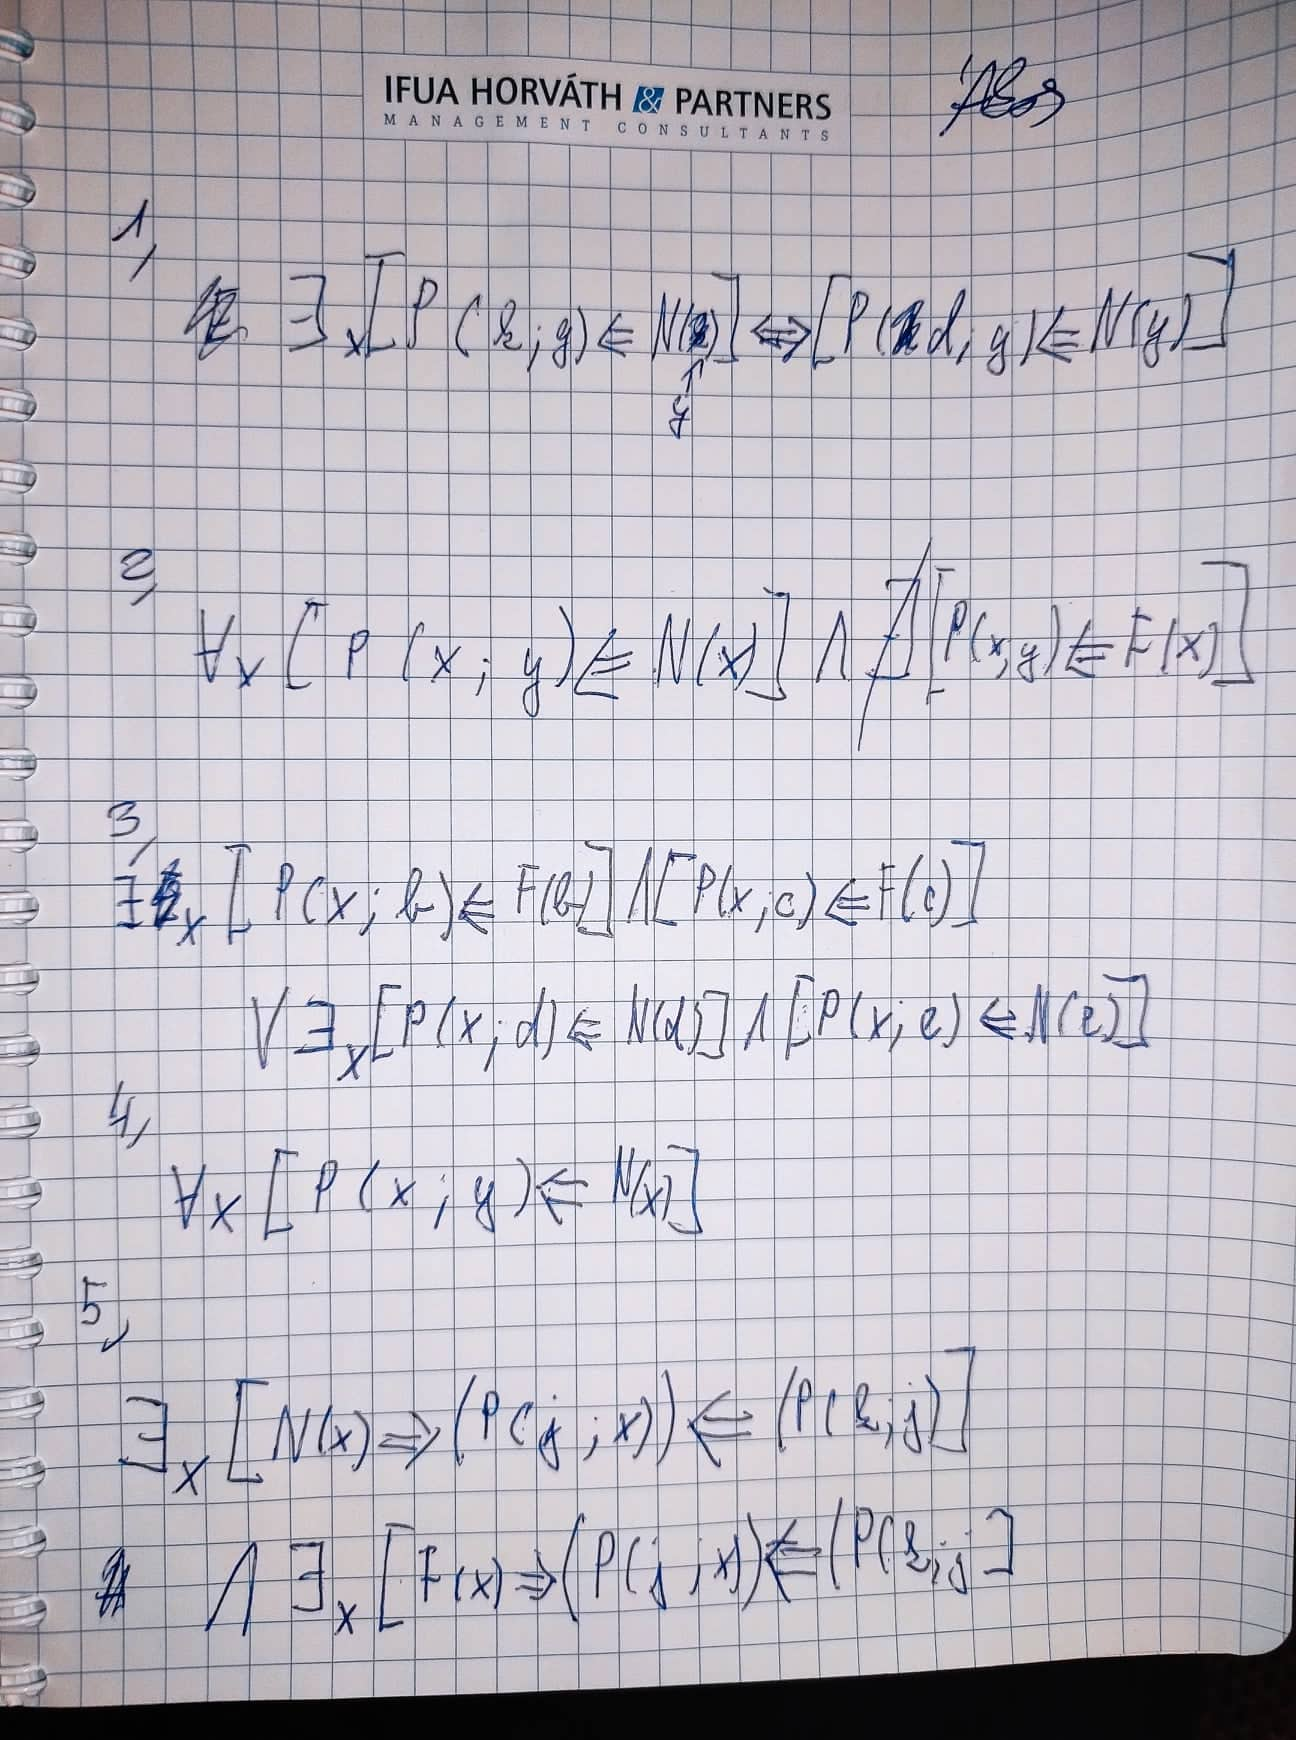 IFUA HORVÁTH & PARTNERS
MANAGEMENT CONSULTANTS
1,
∃x[P(k;y)⇐N( )]⇔[P(d;y)⇐N(y)]
↑
y
2,
∀x[P(x;y)⇐N(x)]∧∄[P(x;y)⇐F(x)]
3,
∃x[P(x;b)⇐F(b)]∧[P(x;c)⇐F(c)]
∨∃x[P(x;d)⇐N(d)]∧[P(x;e)⇐N(e)]
4,
∀x[P(x;y)⇐N(x)]
5,
∃x[N(x)⇒(P(j;x))⇐(P(k;j)]
∧∃x[F(x)⇒(P(j;x))⇐(P(k;j]